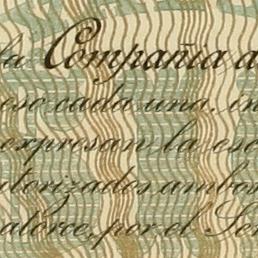 la Compañía a
eso cada uno, in
expresan la esc
utorizados ambos
atorce, por el Señ